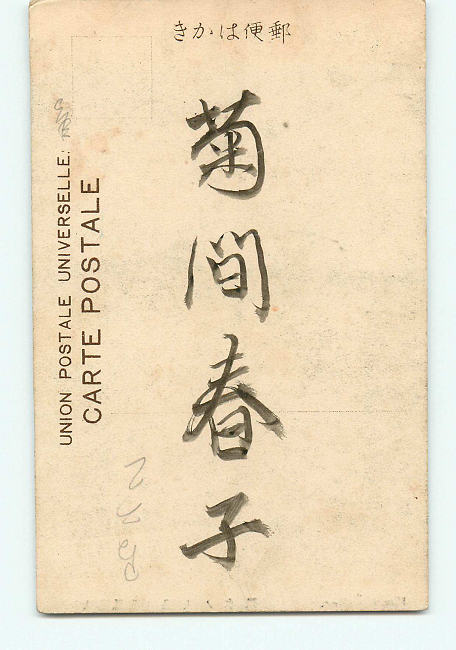 きかは便郵
菊間春子
UNION POSTALE UNIVERSELLE.
CARTE POSTALE